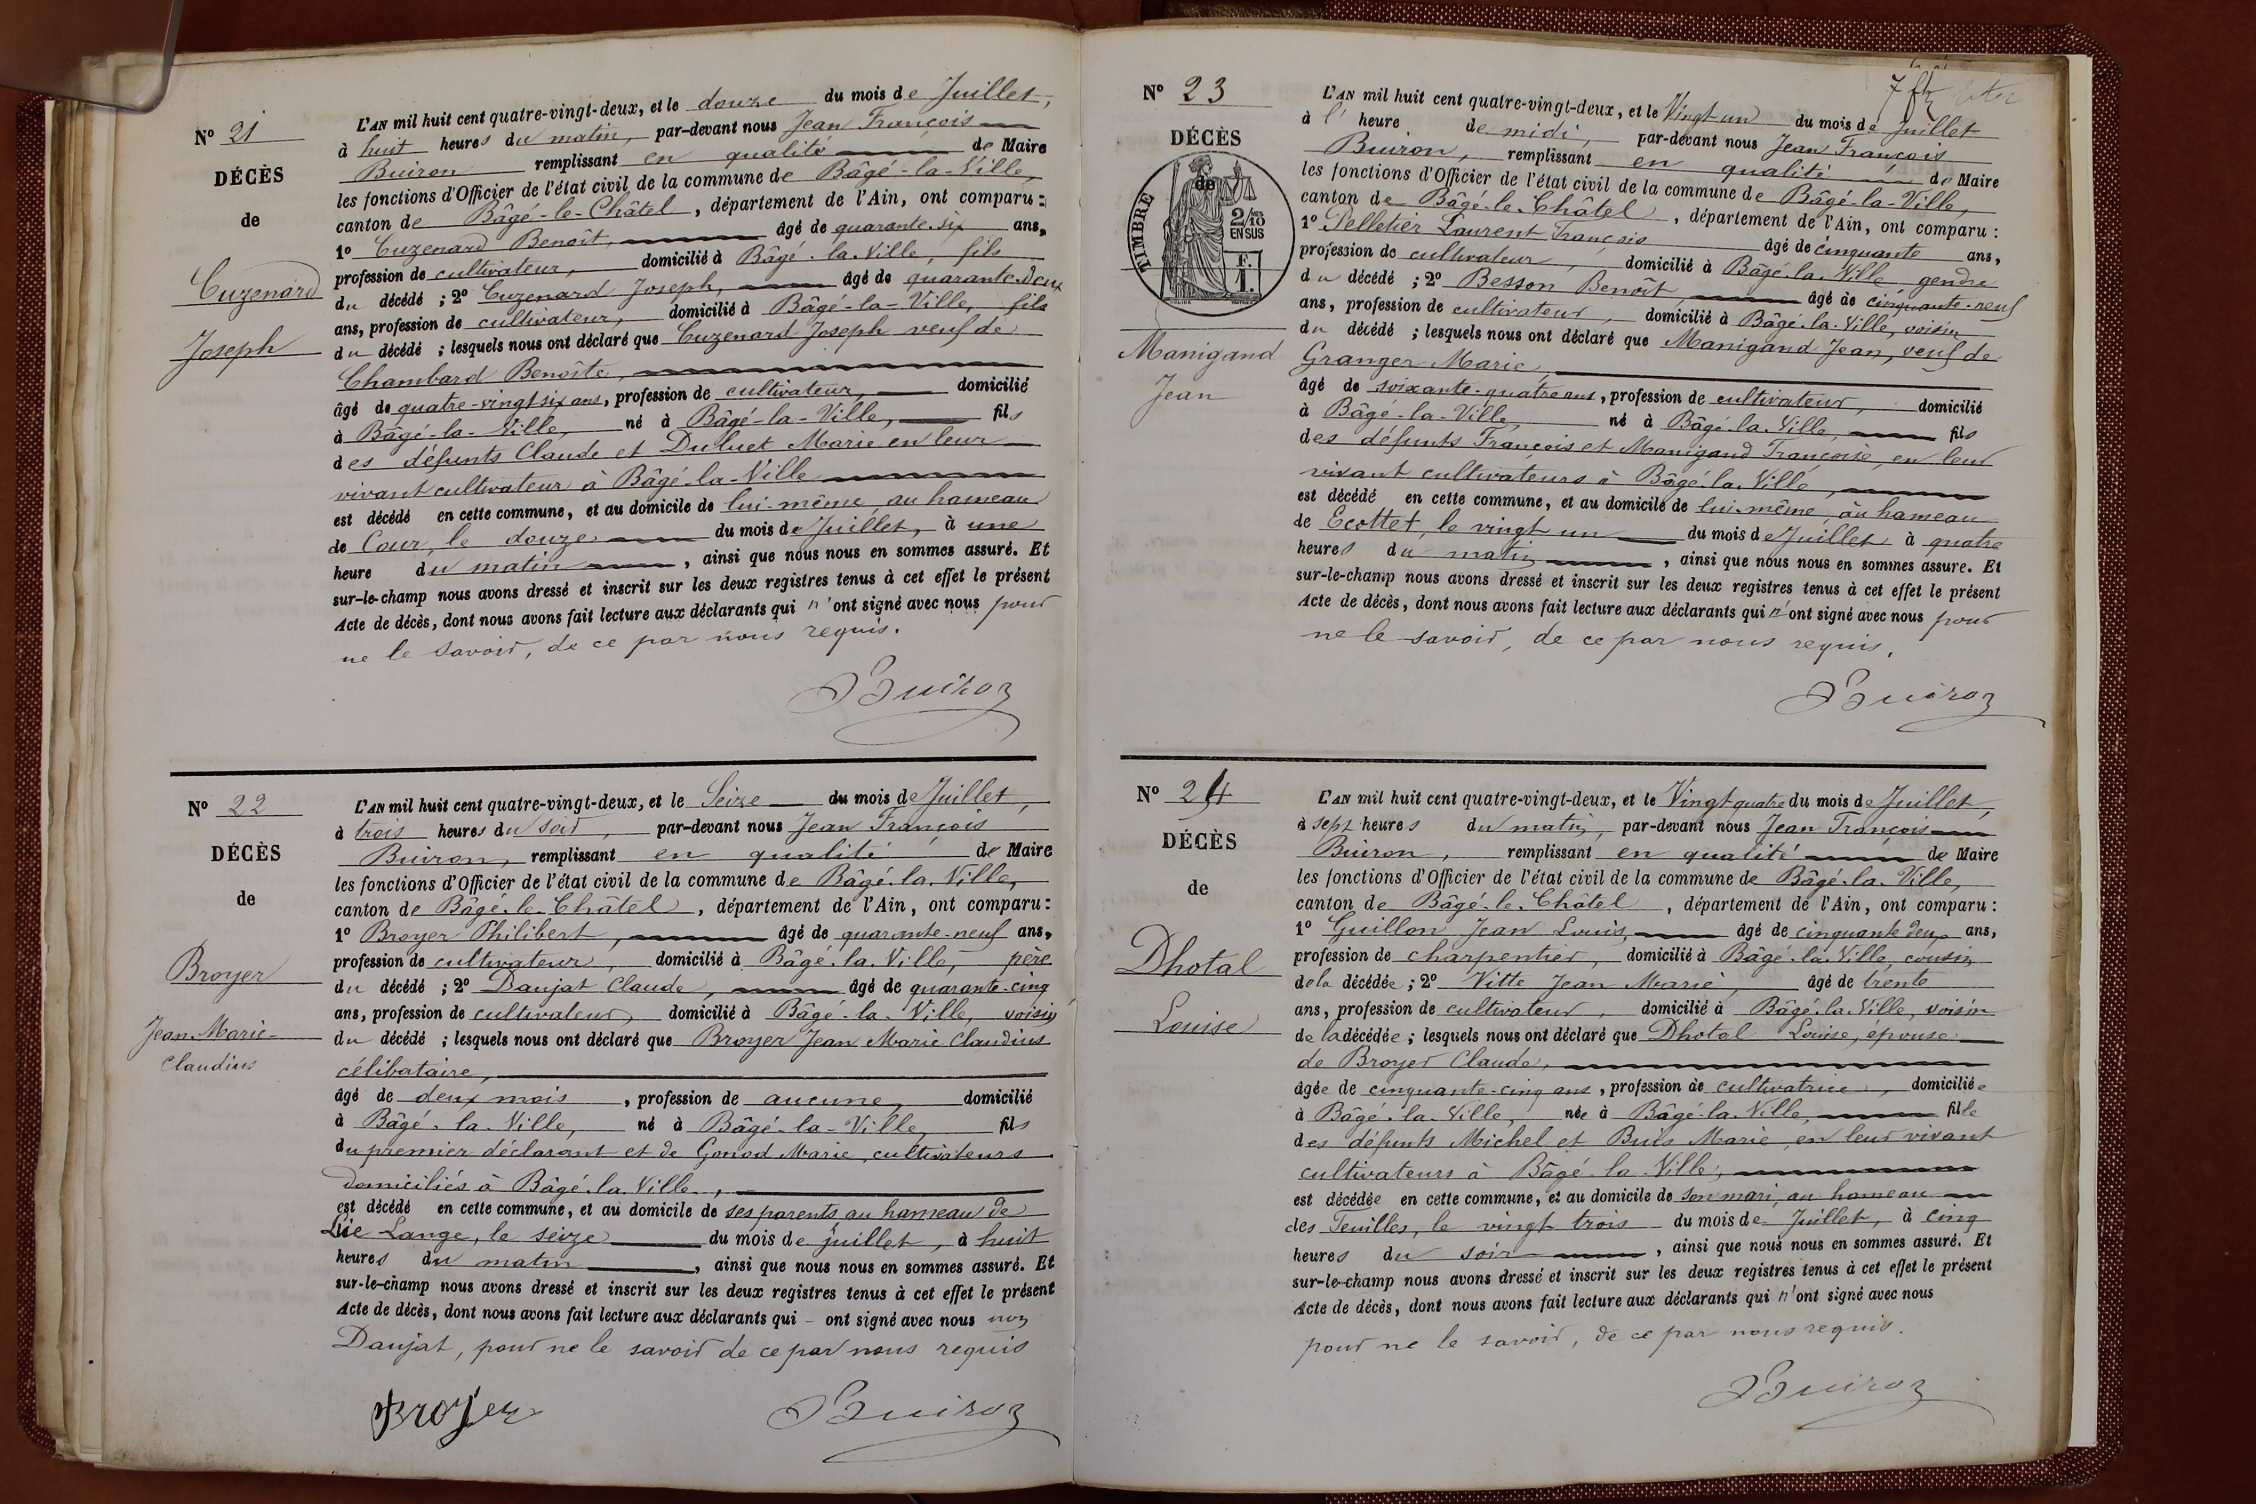 N° 21
DÉCÈS
de
Cuzenard
Joseph
L'AN mil huit cent quatre-vingt-deux, et le douze du mois de Juillet,
à huit heures du matin, par-devant nous Jean François
Buiron remplissant en qualité de Maire
les fonctions d'Officier de l'état civil de la commune de Bâgé-la-Ville,
canton de Bâgé-le-Châtel, département de l'Ain, ont comparu :
1° Cuzenard Benoît, âgé de quarante-six ans,
profession de cultivateur, domicilié à Bâgé-la-Ville, fils
du décédé ; 2° Cuzenard Joseph, âgé de quarante-deux
ans, profession de cultivateur, domicilié à Bâgé-la-Ville, fils
du décédé ; lesquels nous ont déclaré que Cuzenard Joseph veuf de
Chambard Benoîte,
âgé de quatre-vingt six ans, profession de cultivateur, domicilié
à Bâgé-la-Ville, né à Bâgé-la-Ville, fils
des défunts Claude et Duluet Marie en leur
vivant cultivateur à Bâgé-la-Ville
est décédé en cette commune, et au domicile de lui-même, au hameau
de Cour, le douze du mois de Juillet, à une
heure du matin, ainsi que nous nous en sommes assuré. Et
sur-le-champ nous avons dressé et inscrit sur les deux registres tenus à cet effet le présent
Acte de décès, dont nous avons fait lecture aux déclarants qui n'ont signé avec nous pour
ne le savoir, de ce par nous requis.
Buiron
N° 22
DÉCÈS
de
Broyer
Jean-Marie-
Claudius
L'AN mil huit cent quatre-vingt-deux, et le Seize du mois de Juillet,
à trois heures du soir, par-devant nous Jean François
Buiron, remplissant en qualité de Maire
les fonctions d'Officier de l'état civil de la commune de Bâgé-la-Ville,
canton de Bâgé-le-Châtel, département de l'Ain, ont comparu :
1° Broyer Philibert, âgé de quarante-neuf ans,
profession de cultivateur, domicilié à Bâgé-la-Ville, père
du décédé ; 2° Daujat Claude, âgé de quarante-cinq
ans, profession de cultivateur, domicilié à Bâgé-la-Ville, voisin
du décédé ; lesquels nous ont déclaré que Broyer Jean Marie Claudius
célibataire,
âgé de deux mois, profession de aucune, domicilié
à Bâgé-la-Ville, né à Bâgé-la-Ville, fils
du premier déclarant et de Gonod Marie, cultivateurs
domiciliés à Bâgé-la-Ville,
est décédé en cette commune, et au domicile de ses parents au hameau de
Lange, le seize du mois de juillet, à huit
heures du matin, ainsi que nous nous en sommes assuré. Et
sur-le-champ nous avons dressé et inscrit sur les deux registres tenus à cet effet le présent
Acte de décès, dont nous avons fait lecture aux déclarants qui - ont signé avec nous non
Daujat, pour ne le savoir de ce par nous requis
Broyer Buiron
N° 23
DÉCÈS
de
TIMBRE
2/10
EN SUS
F.
1.
Manigand
Jean
L'AN mil huit cent quatre-vingt-deux, et le Vingt un du mois de Juillet
à l' heure de midi, par-devant nous Jean François
Buiron, remplissant en qualité de Maire
les fonctions d'Officier de l'état civil de la commune de Bâgé-la-Ville,
canton de Bâgé-le-Châtel, département de l'Ain, ont comparu :
1° Pelletier Laurent François âgé de cinquante ans,
profession de cultivateur, domicilié à Bâgé-la-Ville gendre
du décédé ; 2° Besson Benoît, âgé de cinquante-neuf
ans, profession de cultivateur, domicilié à Bâgé-la-Ville, voisin
du décédé ; lesquels nous ont déclaré que Manigand Jean, veuf de
Granger Marie,
âgé de soixante-quatre ans, profession de cultivateur, domicilié
à Bâgé-la-Ville, né à Bâgé-la-Ville, fils
des défunts François et Manigand Françoise, en leur
vivant cultivateurs à Bâgé-la-Ville,
est décédé en cette commune, et au domicile de lui-même, au hameau
de Ecottet, le vingt un du mois de Juillet à quatre
heures du matin, ainsi que nous nous en sommes assuré. Et
sur-le-champ nous avons dressé et inscrit sur les deux registres tenus à cet effet le présent
Acte de décès, dont nous avons fait lecture aux déclarants qui n'ont signé avec nous pour
ne le savoir, de ce par nous requis.
Buiron
N° 24
DÉCÈS
de
Dhotal
Louise
L'AN mil huit cent quatre-vingt-deux, et le Vingt quatre du mois de Juillet,
à sept heures du matin, par-devant nous Jean François
Buiron, remplissant en qualité de Maire
les fonctions d'Officier de l'état civil de la commune de Bâgé-la-Ville,
canton de Bâgé-le-Châtel, département de l'Ain, ont comparu :
1° Guillon Jean Louis, âgé de cinquante deux ans,
profession de charpentier, domicilié à Bâgé-la-Ville, cousin
de la décédée ; 2° Vitte Jean Marie, âgé de trente
ans, profession de cultivateur, domicilié à Bâgé-la-Ville, voisin
de la décédée ; lesquels nous ont déclaré que Dhotal Louise, epouse
de Broyer Claude,
âgée de cinquante-cinq ans, profession de cultivatrice, domiciliée
à Bâgé-la-Ville, née à Bâgé-la-Ville, fille
des défunts Michel et Buis Marie, en leur vivant
cultivateurs à Bâgé-la-Ville,
est décédée en cette commune, et au domicile de son mari, au hameau
des Feuilles, le vingt trois du mois de Juillet, à cinq
heures du soir, ainsi que nous nous en sommes assuré. Et
sur-le-champ nous avons dressé et inscrit sur les deux registres tenus à cet effet le présent
Acte de décès, dont nous avons fait lecture aux déclarants qui n'ont signé avec nous
pour ne le savoir, de ce par nous requis.
Buiron